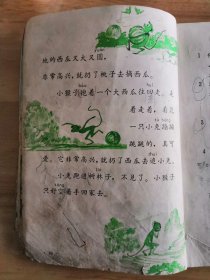 地的西瓜又大又圆，
非常高兴，就扔了桃子去摘西瓜。
小猴子抱着一个大西瓜往回走。走
着走着，看见
一只小兔蹦蹦
跳跳的，真可
爱。它非常高兴，就扔了西瓜去追小兔。
小兔跑进树林子，不见了。小猴子
只好空着手回家去。